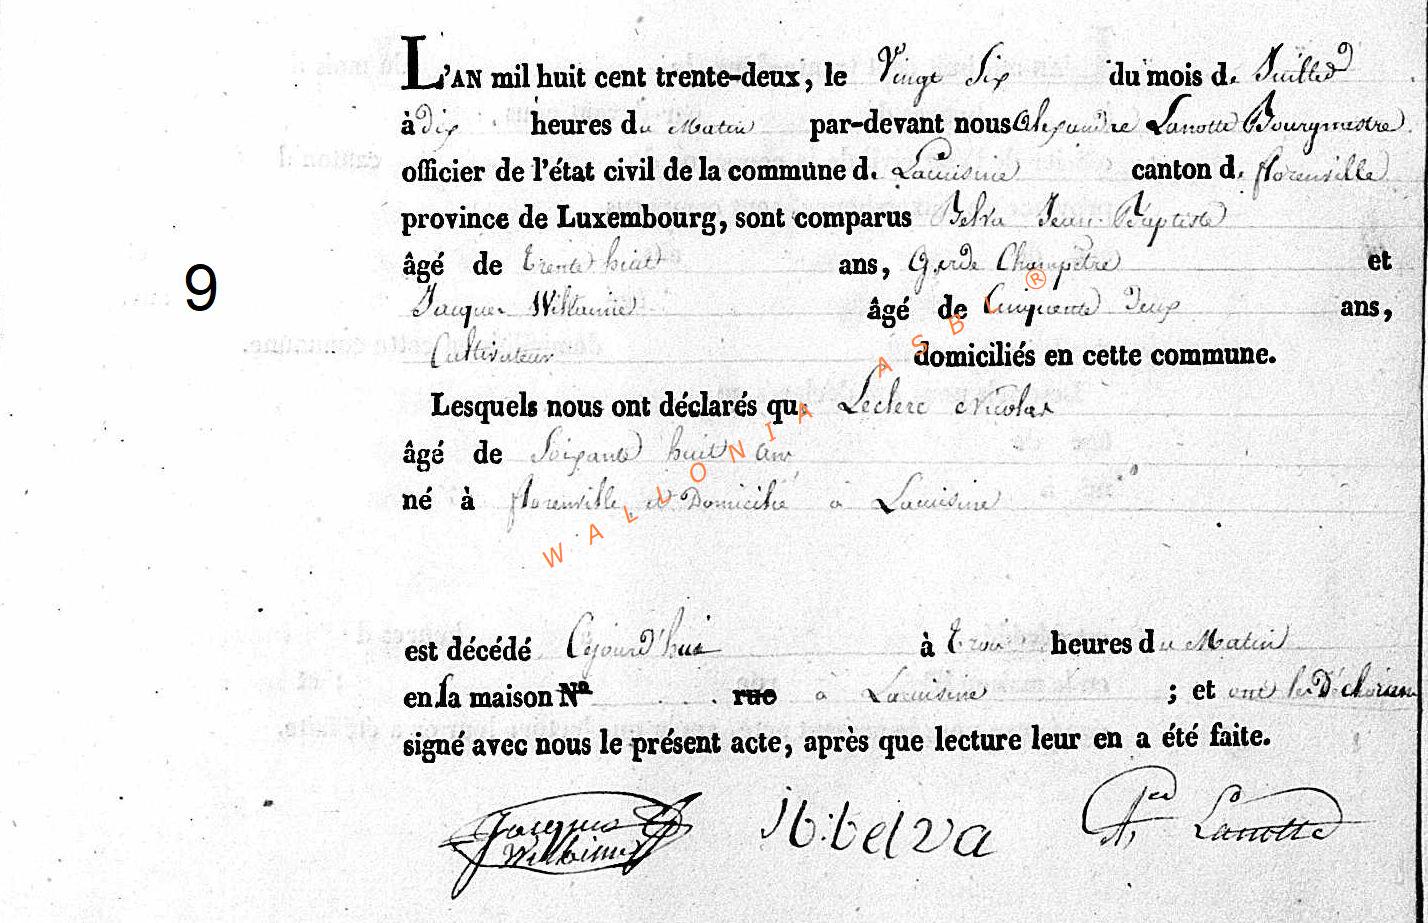 L'AN mil huit cent trente-deux, le Vingt Six du mois d. Juillet
à dix heures du Matin par-devant nous Alexandre Lanotte Bourgmestre
officier de l'état civil de la commune d. Lacuisine canton d. florenville
province de Luxembourg, sont comparus Belva Jean-Baptiste
âgé de trente huit ans, Garde Champêtre et
9
Jacques Willaime âgé de Cinquante Deux ans,
Cultivateur domiciliés en cette commune.
Lesquels nous ont déclarés que Leclerc Nicolas
âgé de Soixante huit ans
né à florenville et Domicilié à Lacuisine
WALLONIA ASBL ®
est décédé Cejourd'hui à trois heures du Matin
en sa maison Nº rue à Lacuisine ; et ont les Déclarans
signé avec nous le présent acte, après que lecture leur en a été faite.
Jacques JB:belva Adre Lanotte
Willaime